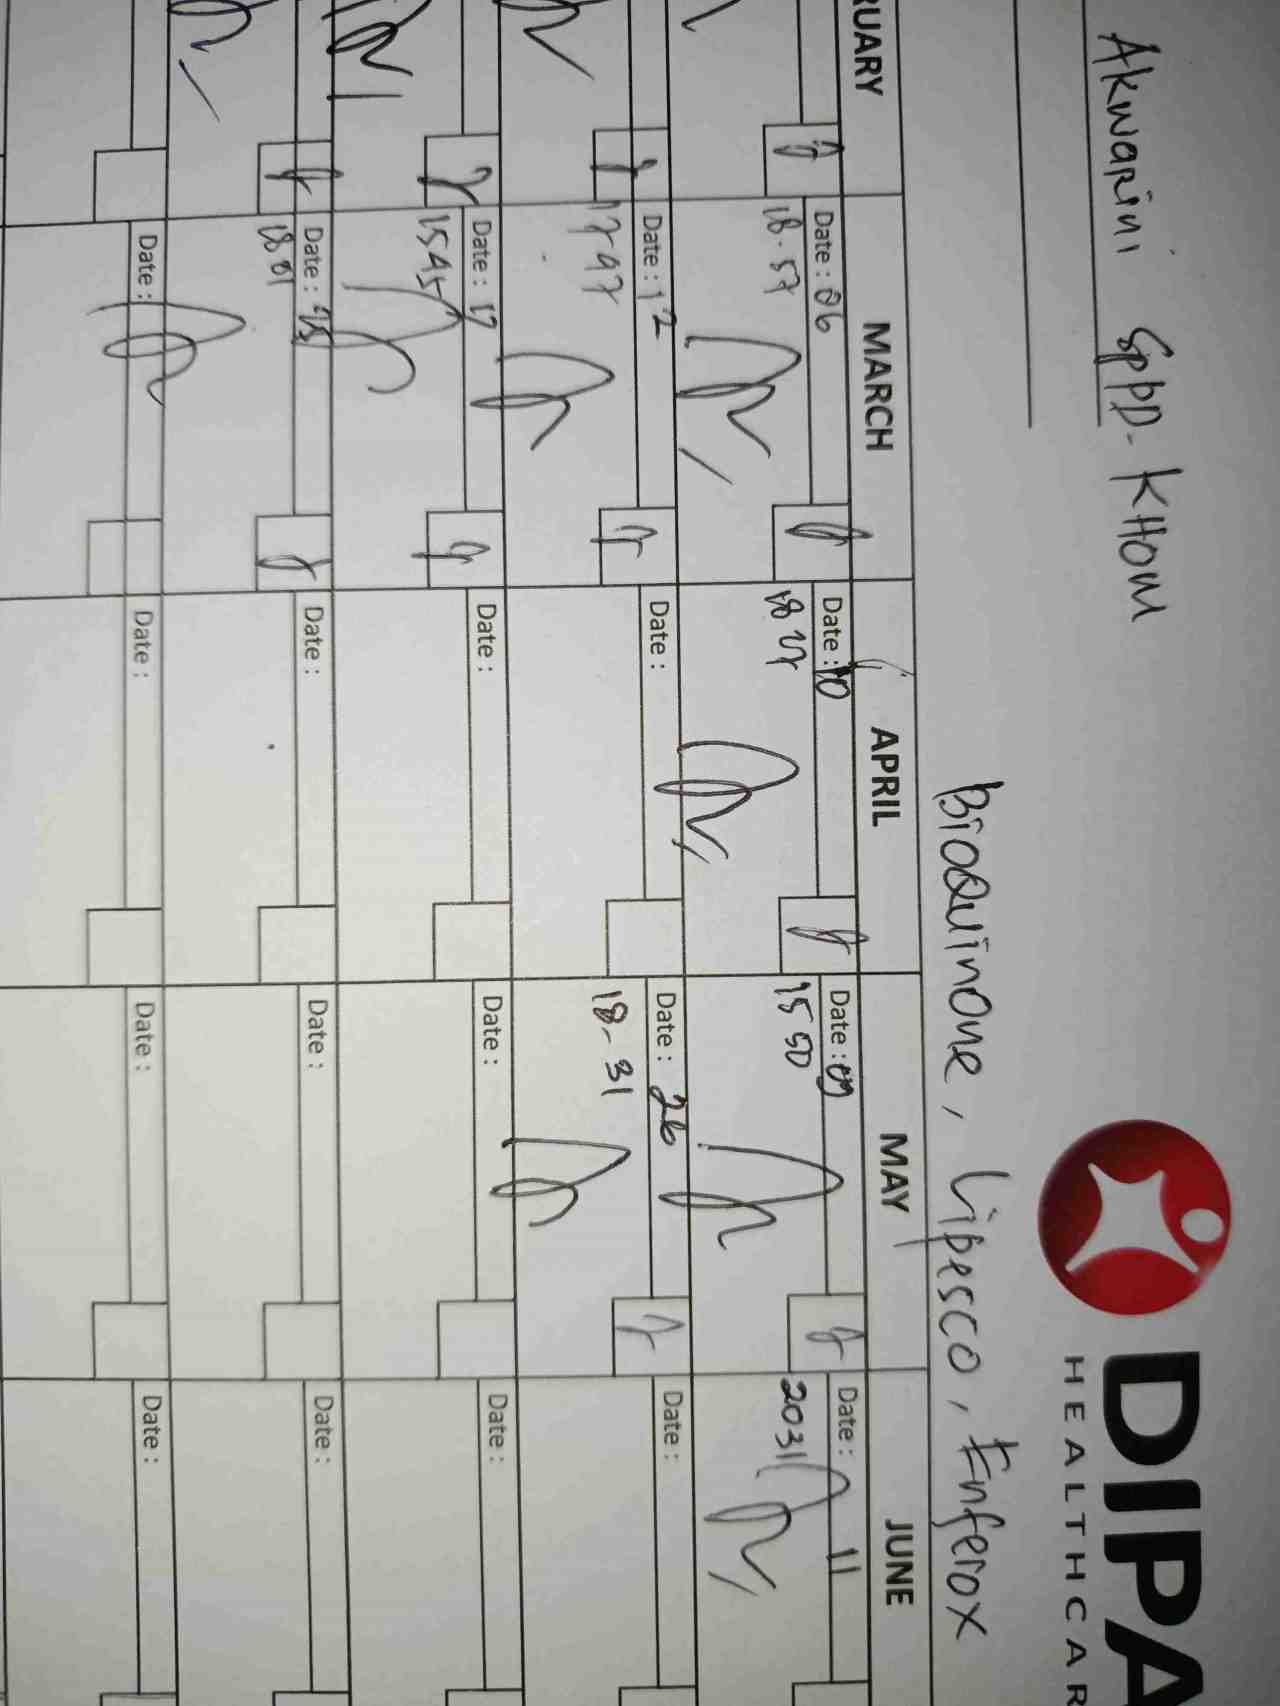 Akwarini SpPD-KHOM
DIPA
HEALTHCAR
BioQuinone, Lipesco, Enferox
RUARY MARCH APRIL MAY JUNE
Date : 06 Date : 10 Date : 09 Date : 11
18.57 18 27 15 50 2031
Date : 12 Date : Date : 26 Date :
17 47 18-31
Date : 17 Date : Date : Date :
1545
Date : Date : Date : Date :
18 01
Date : Date : Date : Date :